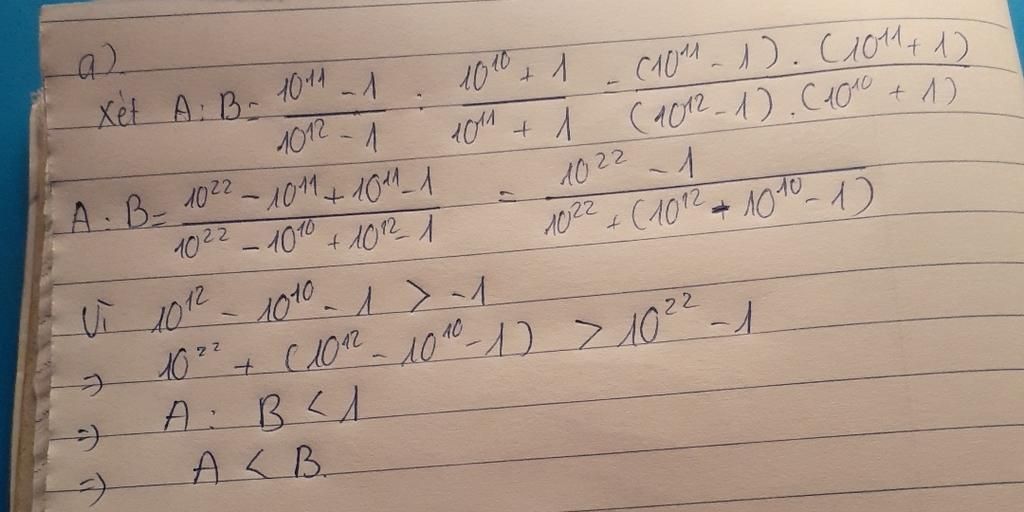 a)
Xét A : B = \frac{10^{11} - 1}{10^{12} - 1} : \frac{10^{10} + 1}{10^{11} + 1} = \frac{(10^{11} - 1) . (10^{11} + 1)}{(10^{12} - 1) . (10^{10} + 1)}
A : B = \frac{10^{22} - 10^{11} + 10^{11} - 1}{10^{22} - 10^{10} + 10^{12} - 1} = \frac{10^{22} - 1}{10^{22} + (10^{12} - 10^{10} - 1)}
Vì 10^{12} - 10^{10} - 1 > -1
⇒ 10^{22} + (10^{12} - 10^{10} - 1) > 10^{22} - 1
⇒ A : B < 1
⇒ A < B.